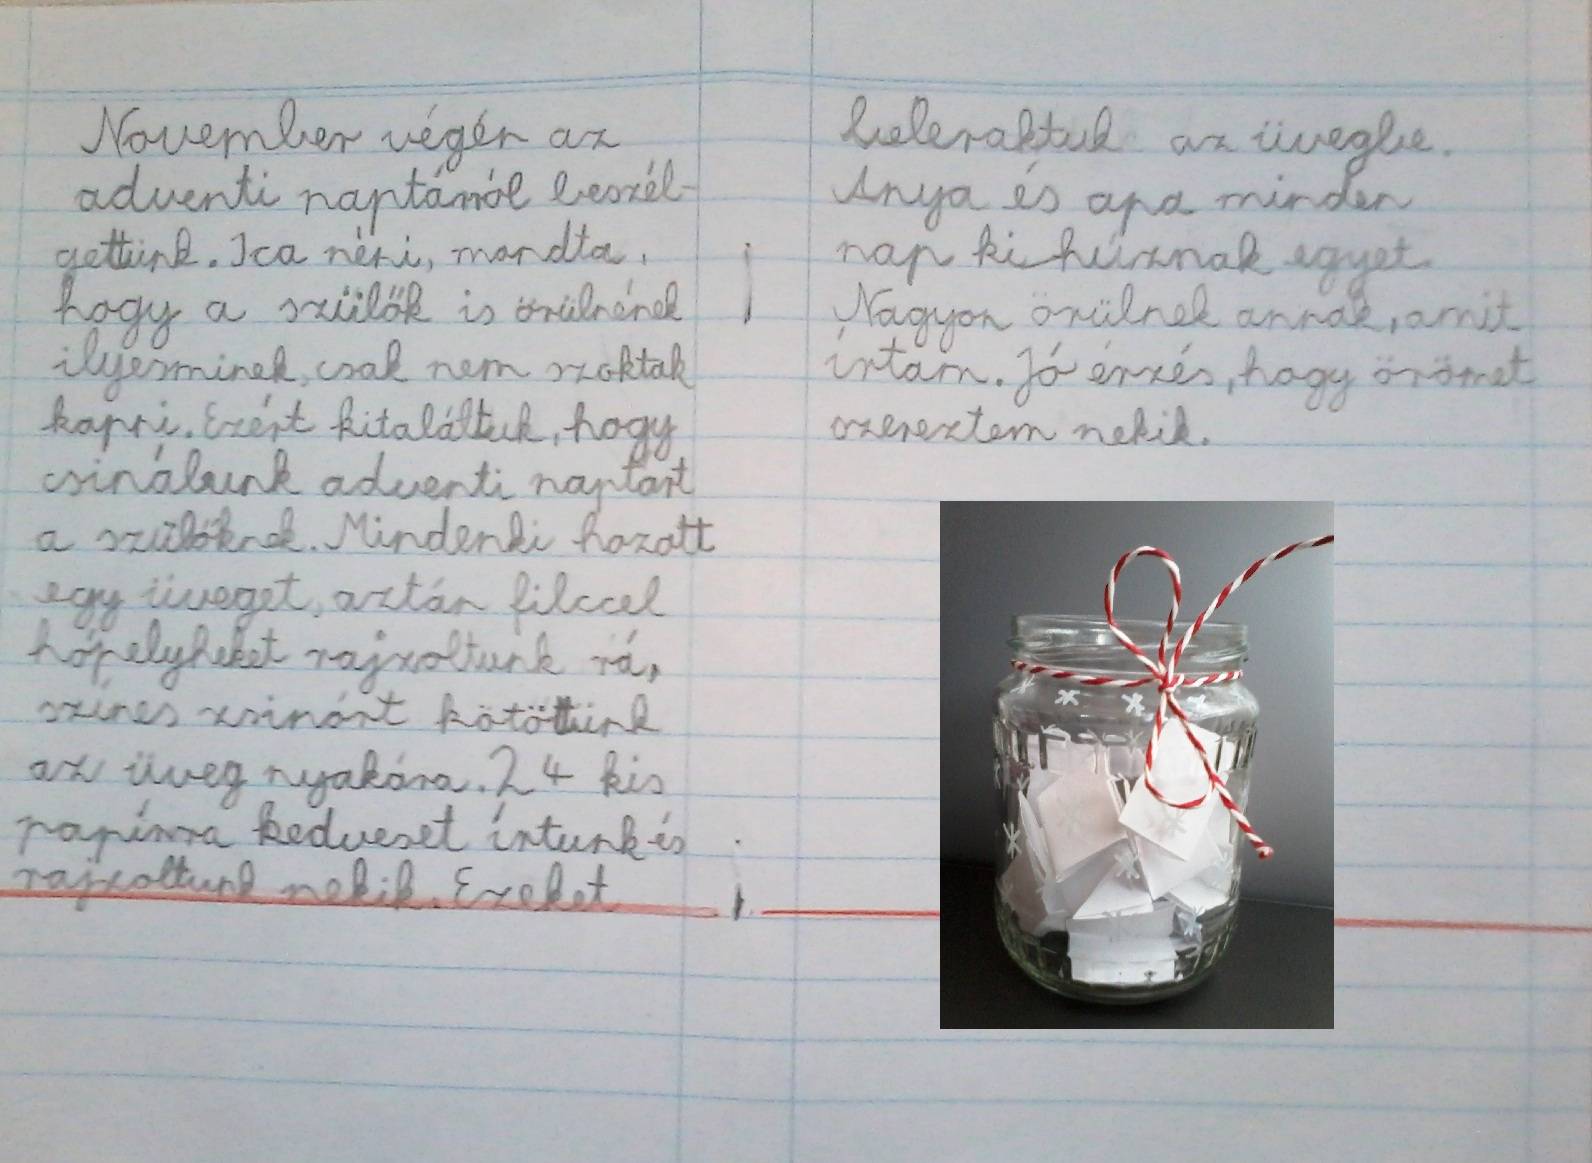 November végén az
adventi naptárról beszél-
gettünk. Ica néni, mondta,
hogy a szülők is örülnének
ilyesminek, csak nem szoktak
kapni. Ezért kitaláltuk, hogy
csinálunk adventi naptárt
a szülőknek. Mindenki hozott
egy üveget, aztán filccel
hópelyheket rajzoltunk rá,
színes zsinórt kötöttünk
az üveg nyakára. 24 kis
papírra kedveset írtunk és
rajzoltunk nekik. Ezeket
beleraktuk az üvegbe.
Anya és apa minden
nap ki húznak egyet.
Nagyon örülnek annak, amit
írtam. Jó érzés, hogy örömet
szereztem nekik.